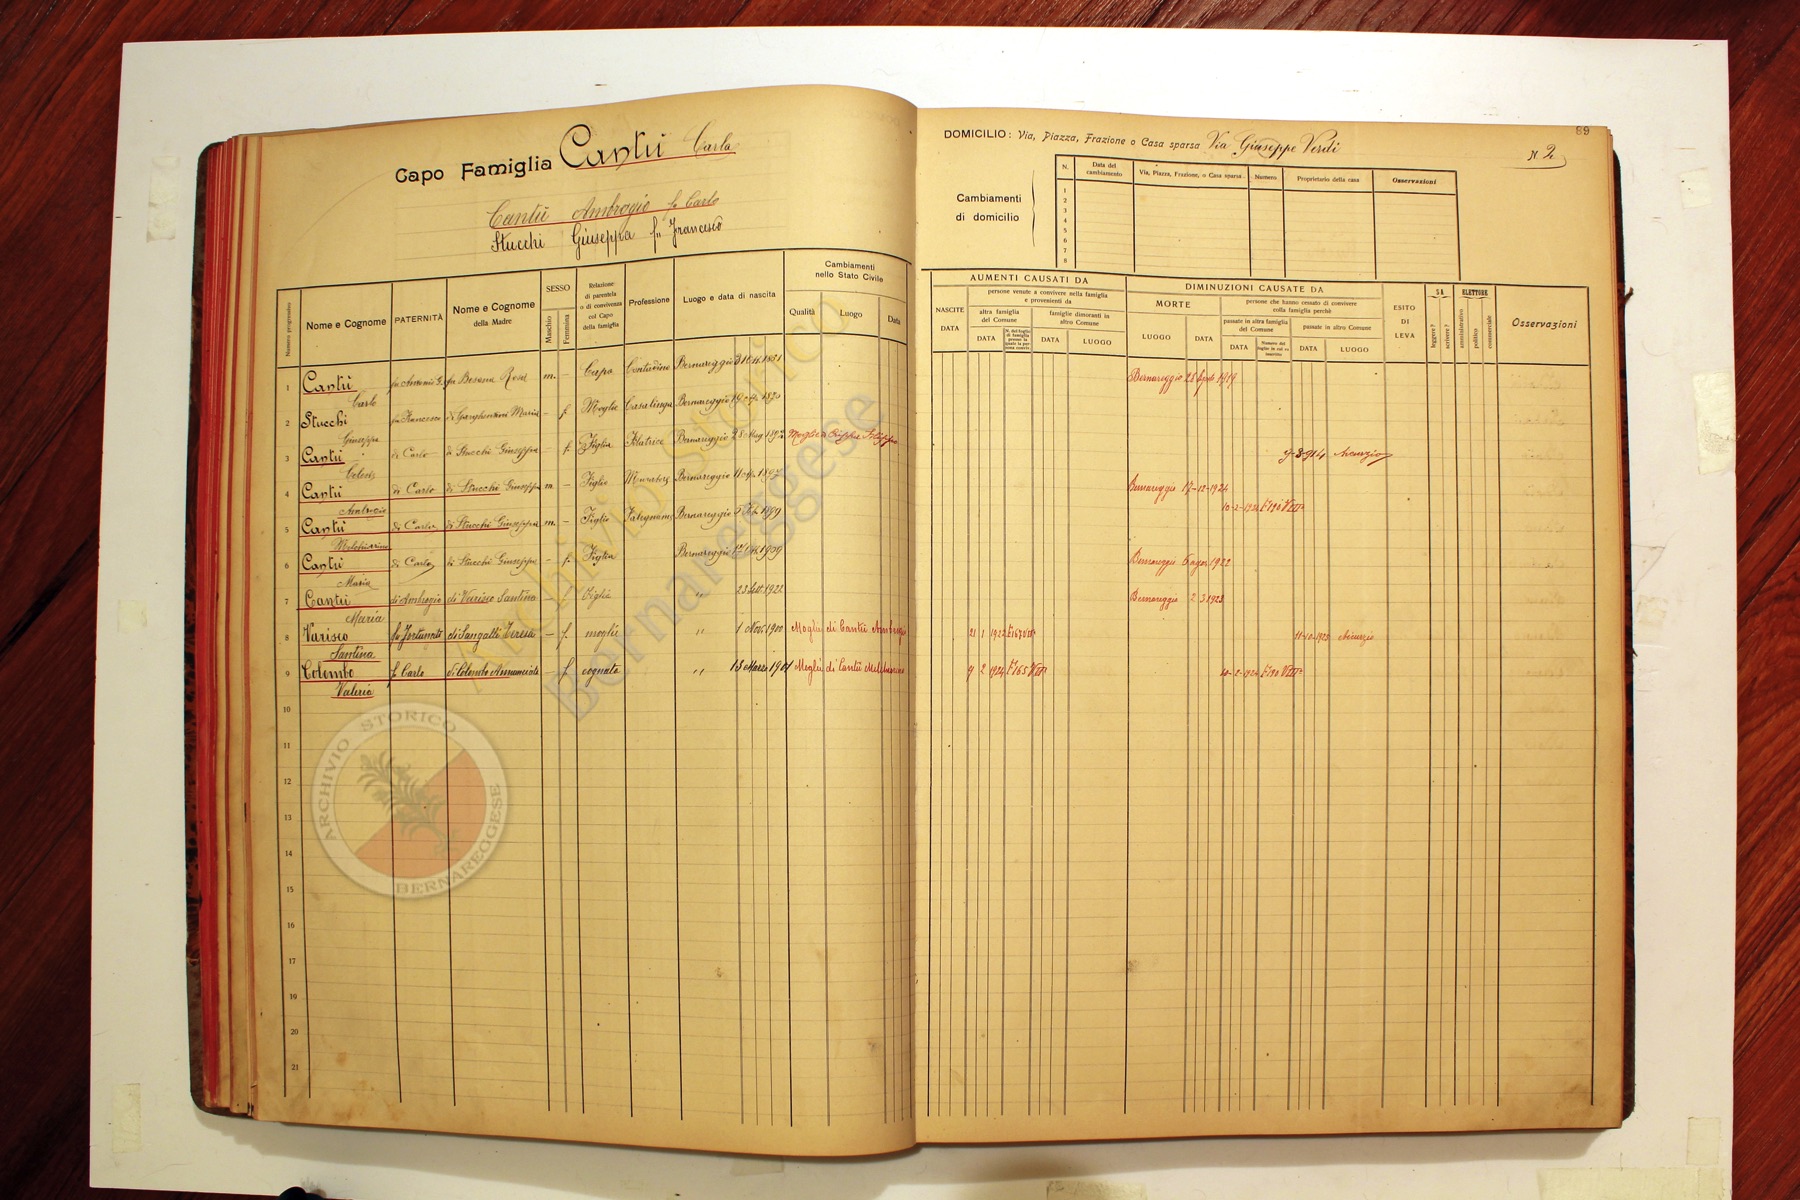 Capo Famiglia Cantù Carlo
Cantù Ambrogio fu Carlo
Stucchi Giuseppa fu Francesco
Numero progressivo
Nome e Cognome
PATERNITÀ
Nome e Cognome della Madre
SESSO
Maschio
Femmina
Relazione di parentela o di convivenza col Capo della famiglia
Professione
Luogo e data di nascita
Cambiamenti nello Stato Civile
Qualità
Luogo
Data
1 Cantù Carlo fu Antonio G. fu Besana Rosa m. – Capo Contadino Bernareggio 31 1851
2 Stucchi Giuseppa fu Francesco di Garghentini Maria – f. Moglie Casalinga Bernareggio 19 1870
3 Cantù di Carlo di Stucchi Giuseppa – f. Figlia Bernareggio 28 Mag. Moglie
4 Cantù Ambrogio di Carlo di Stucchi Giuseppa m. – Figlio Bernareggio 11
5 Cantù Melchiorrino di Carlo di Stucchi Giuseppa m. – Figlio Falegname Bernareggio 5 1899
6 Cantù Maria di Carlo di Stucchi Giuseppa – f. Figlia Bernareggio 1909
7 Cantù Maria di Ambrogio di Varisco Santina – f. Figlia " 23 Sett. 1922
8 Varisco Santina fu Fortunato di Sangalli Teresa – f. moglie " 1 Nov. 1900 Moglie di Cantù Ambrogio
9 Colombo Valeria f. Carlo di Colombo Annunciata f. cognata " 13 Marzo 1901 Moglie di Cantù Melchiorrino
10
11
12
13
14
15
16
17
18
19
20
21
89
DOMICILIO: Via, Piazza, Frazione o Casa sparsa Via Giuseppe Verdi N 2
Cambiamenti di domicilio
N.
Data del cambiamento
Via, Piazza, Frazione, o Casa sparsa
Numero
Proprietario della casa
Osservazioni
1
2
3
4
5
6
7
8
AUMENTI CAUSATI DA
NASCITE
DATA
persone venute a convivere nella famiglia e provenienti da
altra famiglia del Comune
famiglie dimoranti in altro Comune
DATA
DATA
LUOGO
DIMINUZIONI CAUSATE DA
MORTE
LUOGO
DATA
persone che hanno cessato di convivere colla famiglia perchè
passate in altra famiglia del Comune
passate in altro Comune
DATA
Numero del foglio in cui va inscritto
DATA
LUOGO
ESITO DI LEVA
SA
leggere?
scrivere?
ELETTORE
amministrativo
politico
commerciale
Osservazioni
Bernareggio 28 1919
9-3-914 Aicurzio
Bernareggio 17-12-1924
10-2-1924 F 190 VIII°
Bernareggio 6 agos 1922
Bernareggio 2 3 1923
21 1 1922 F 167 11-10-1925 Aicurzio
9 2 1924 F 165 VIII° 10-2-1924 F 190 VIII°
Archivio Storico
Bernareggese
ARCHIVIO STORICO
BERNAREGGESE